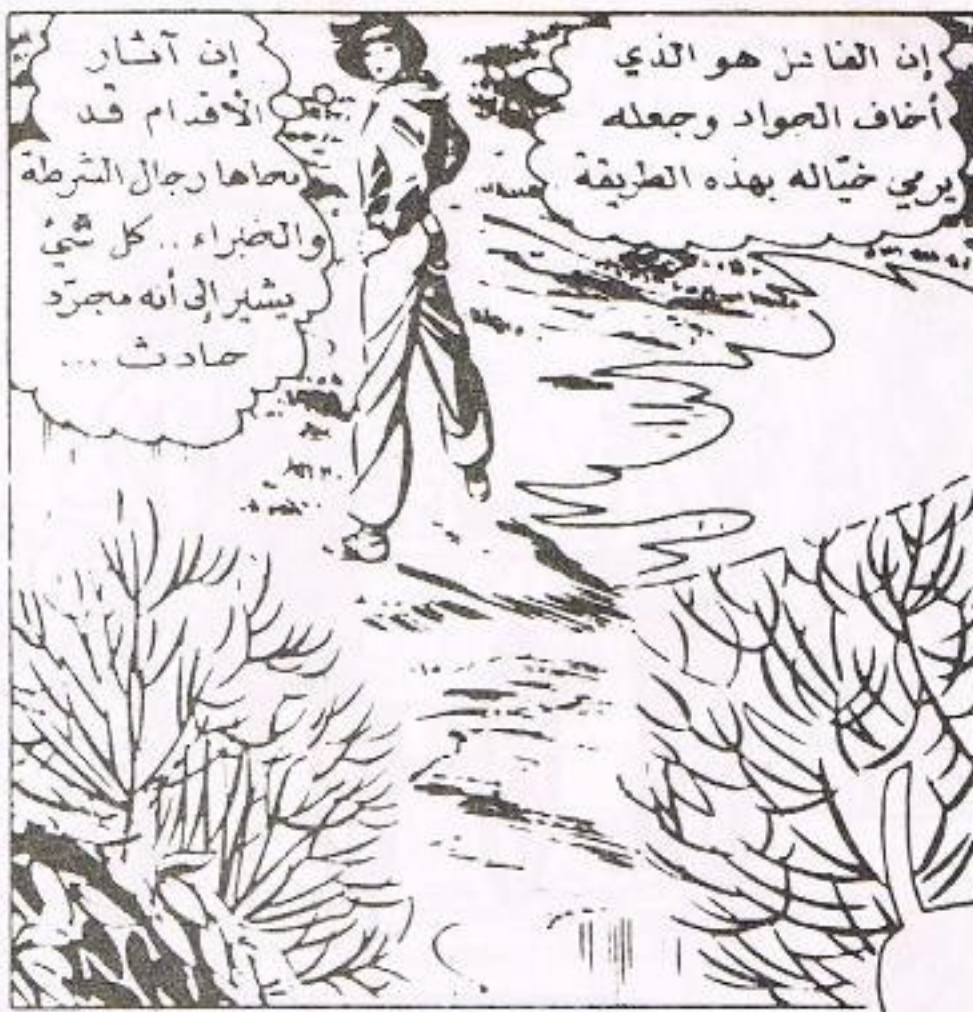 إن الفاشل هو الذي
أخاف الجواد وجعله
يرمي خيّاله بهذه الطريقة
إن آثار
الأقدام قد
محاها رجال الشرطة
والخبراء .. كل شيئ
يشير إلى أنه مجرّد
حادث ...